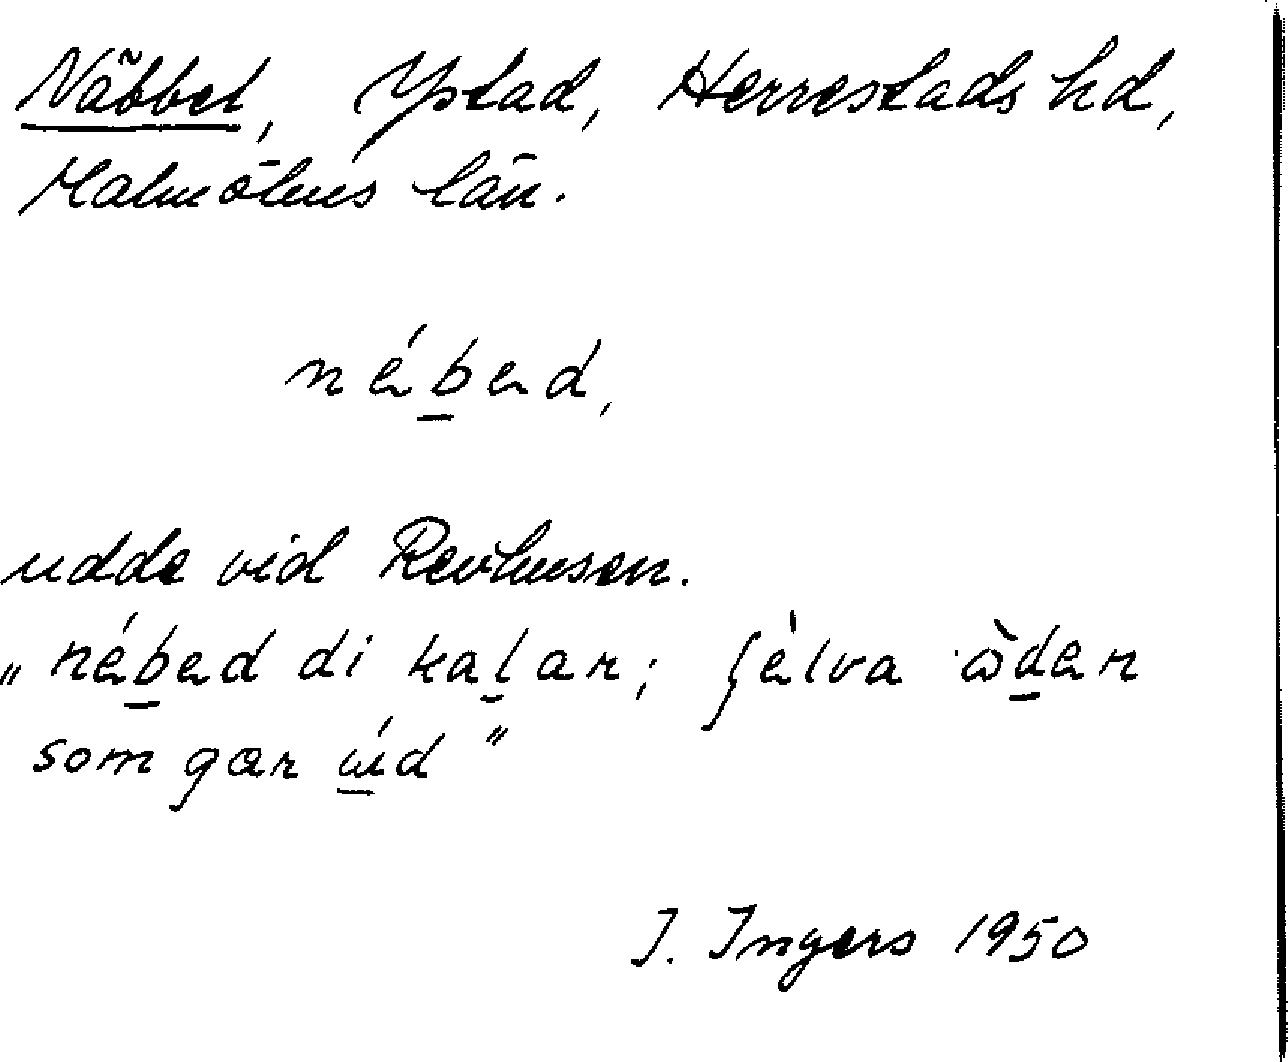 Näbbet, Ystad, Herrestads hd,
Malmöhus län.
nébed,
udde vid Revhusen.
„nébed di kalar; ʃèlva òder
som gær úd"
I. Ingers 1950